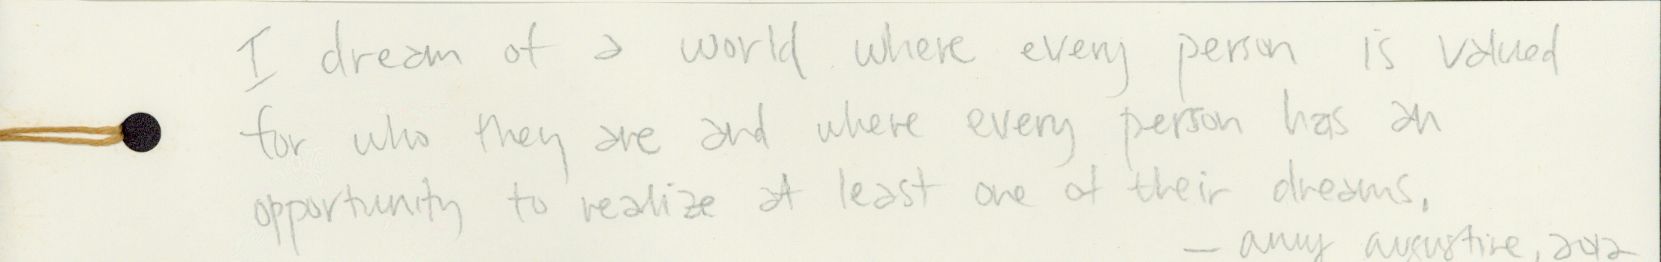 I dream of a world where every person is valued
for who they are and where every person has an
opportunity to realize at least one of their dreams.
— amy augustine, 2012